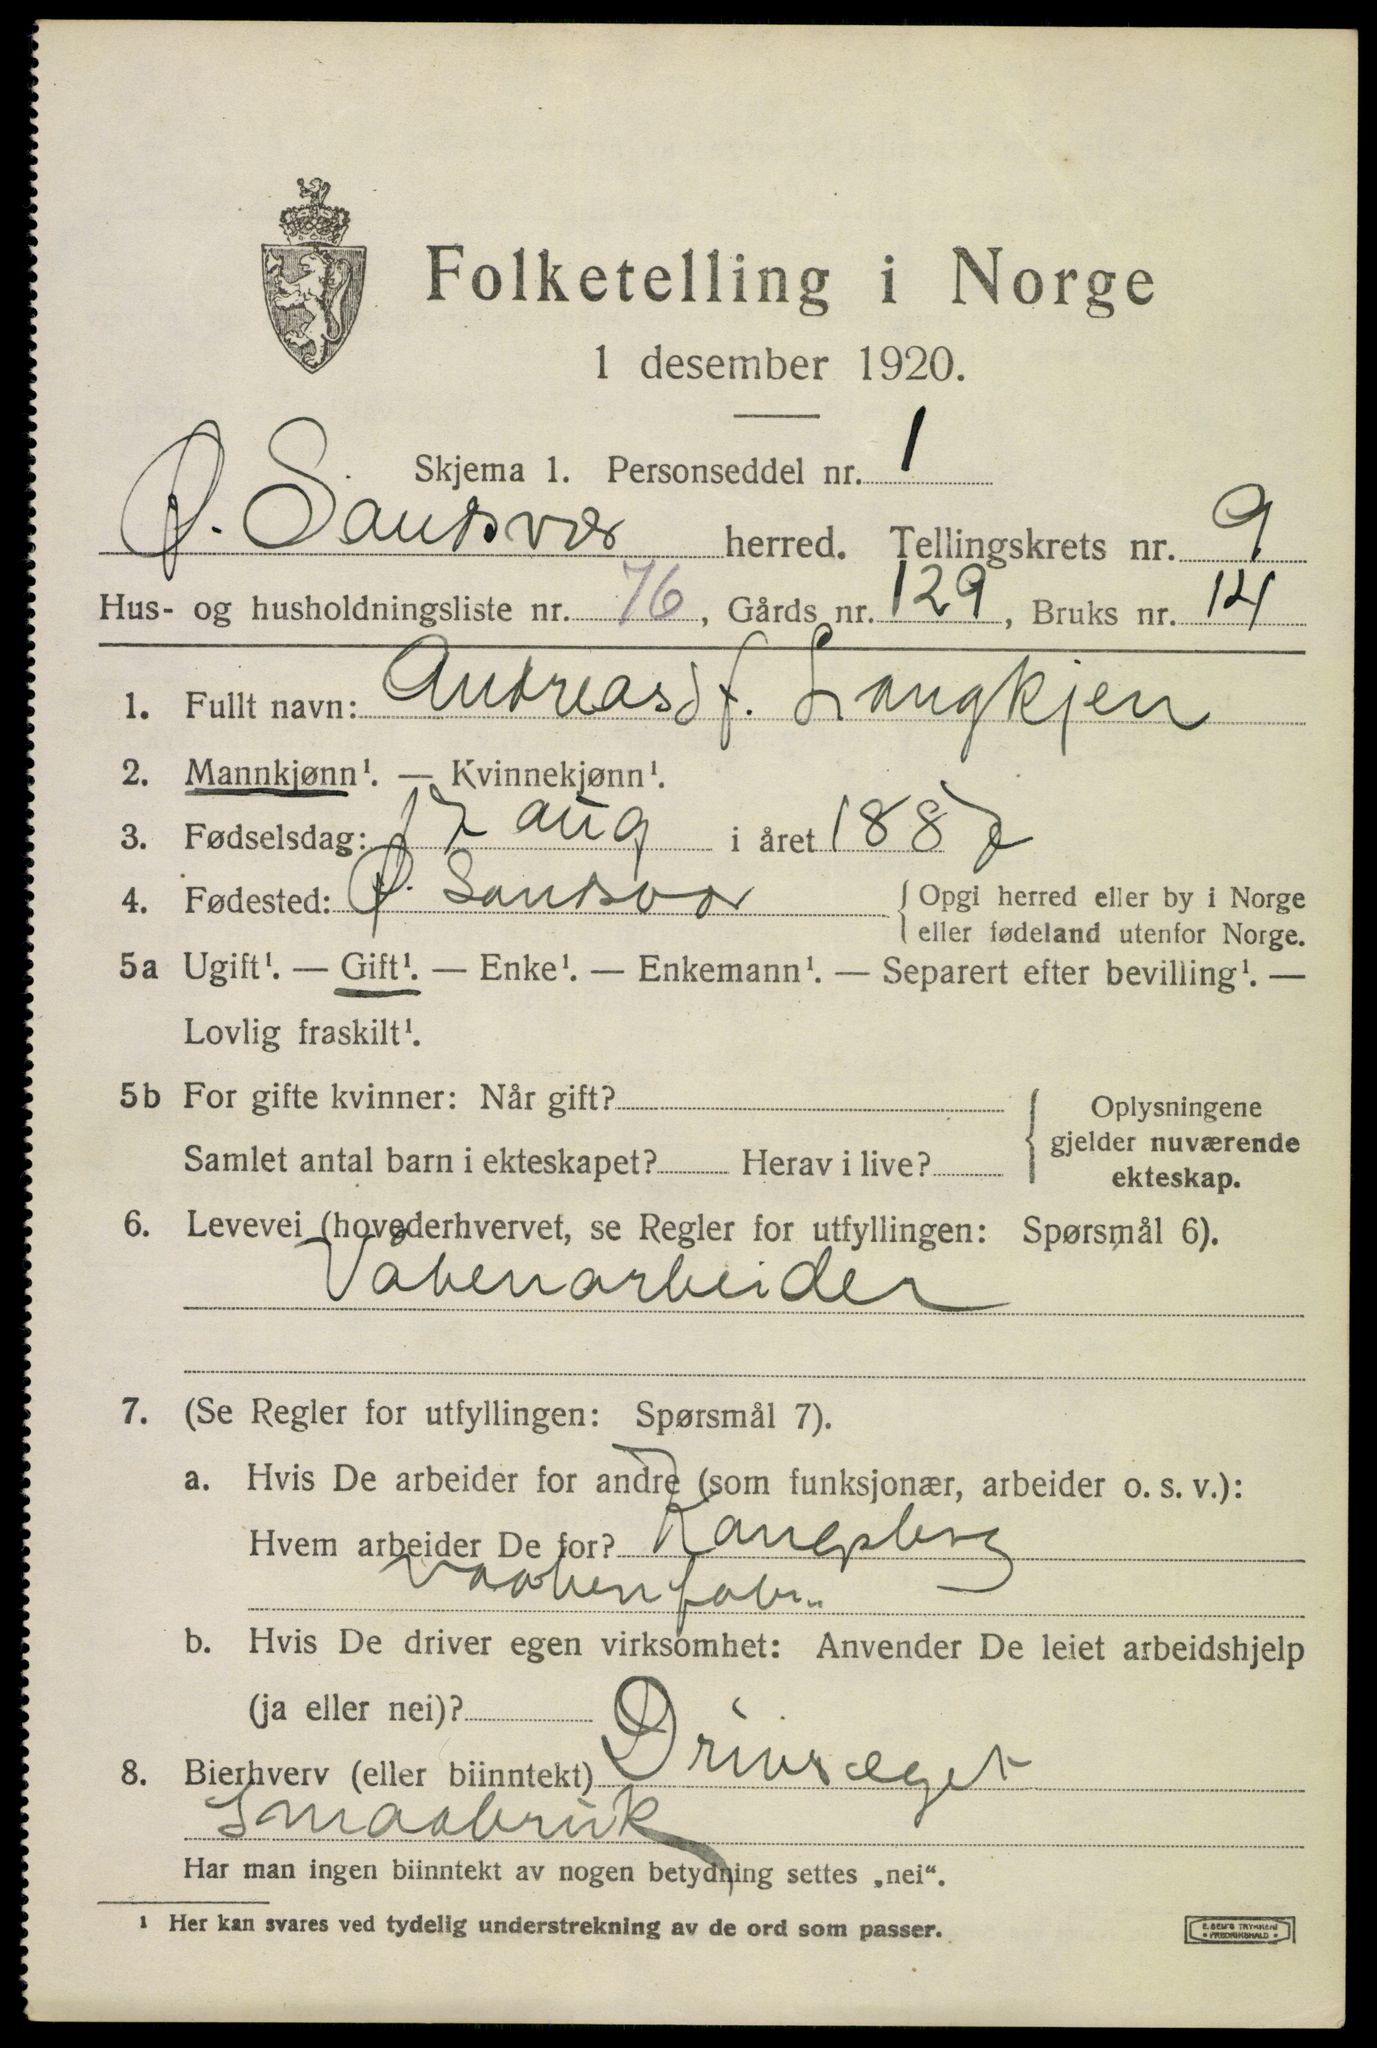 Folketelling i Norge
1 desember 1920.
Skjema 1. Personseddel nr. 1
Ø. Sandsvær herred. Tellingskrets nr. 9
Hus- og husholdningsliste nr. 76, Gårds nr. 129, Bruks nr. 14
1. Fullt navn: Andreas J. Langkjen
2. Mannkjønn¹. — Kvinnekjønn¹.
3. Fødselsdag: 17 aug i året 1887
4. Fødested: Ø. Sandsvær { Opgi herred eller by i Norge
eller fødeland utenfor Norge.
5a Ugift¹. — Gift¹. — Enke¹. — Enkemann¹. — Separert efter bevilling¹. —
Lovlig fraskilt¹.
5b For gifte kvinner: Når gift? { Oplysningene
gjelder nuværende
Samlet antal barn i ekteskapet? Herav i live?
ekteskap.
6. Levevei (hovederhvervet, se Regler for utfyllingen: Spørsmål 6).
Våbenarbeider
7. (Se Regler for utfyllingen: Spørsmål 7).
a. Hvis De arbeider for andre (som funksjonær, arbeider o. s. v.):
Hvem arbeider De for? Kongsberg
vaabenfabr.
b. Hvis De driver egen virksomhet: Anvender De leiet arbeidshjelp
(ja eller nei)?
8. Bierhverv (eller biinntekt) Driver eget
Smaabruk
Har man ingen biinntekt av nogen betydning settes „nei“.
¹ Her kan svares ved tydelig understrekning av de ord som passer.
E. SEM'S TRYKKERI
• FREDRIKSHALD •